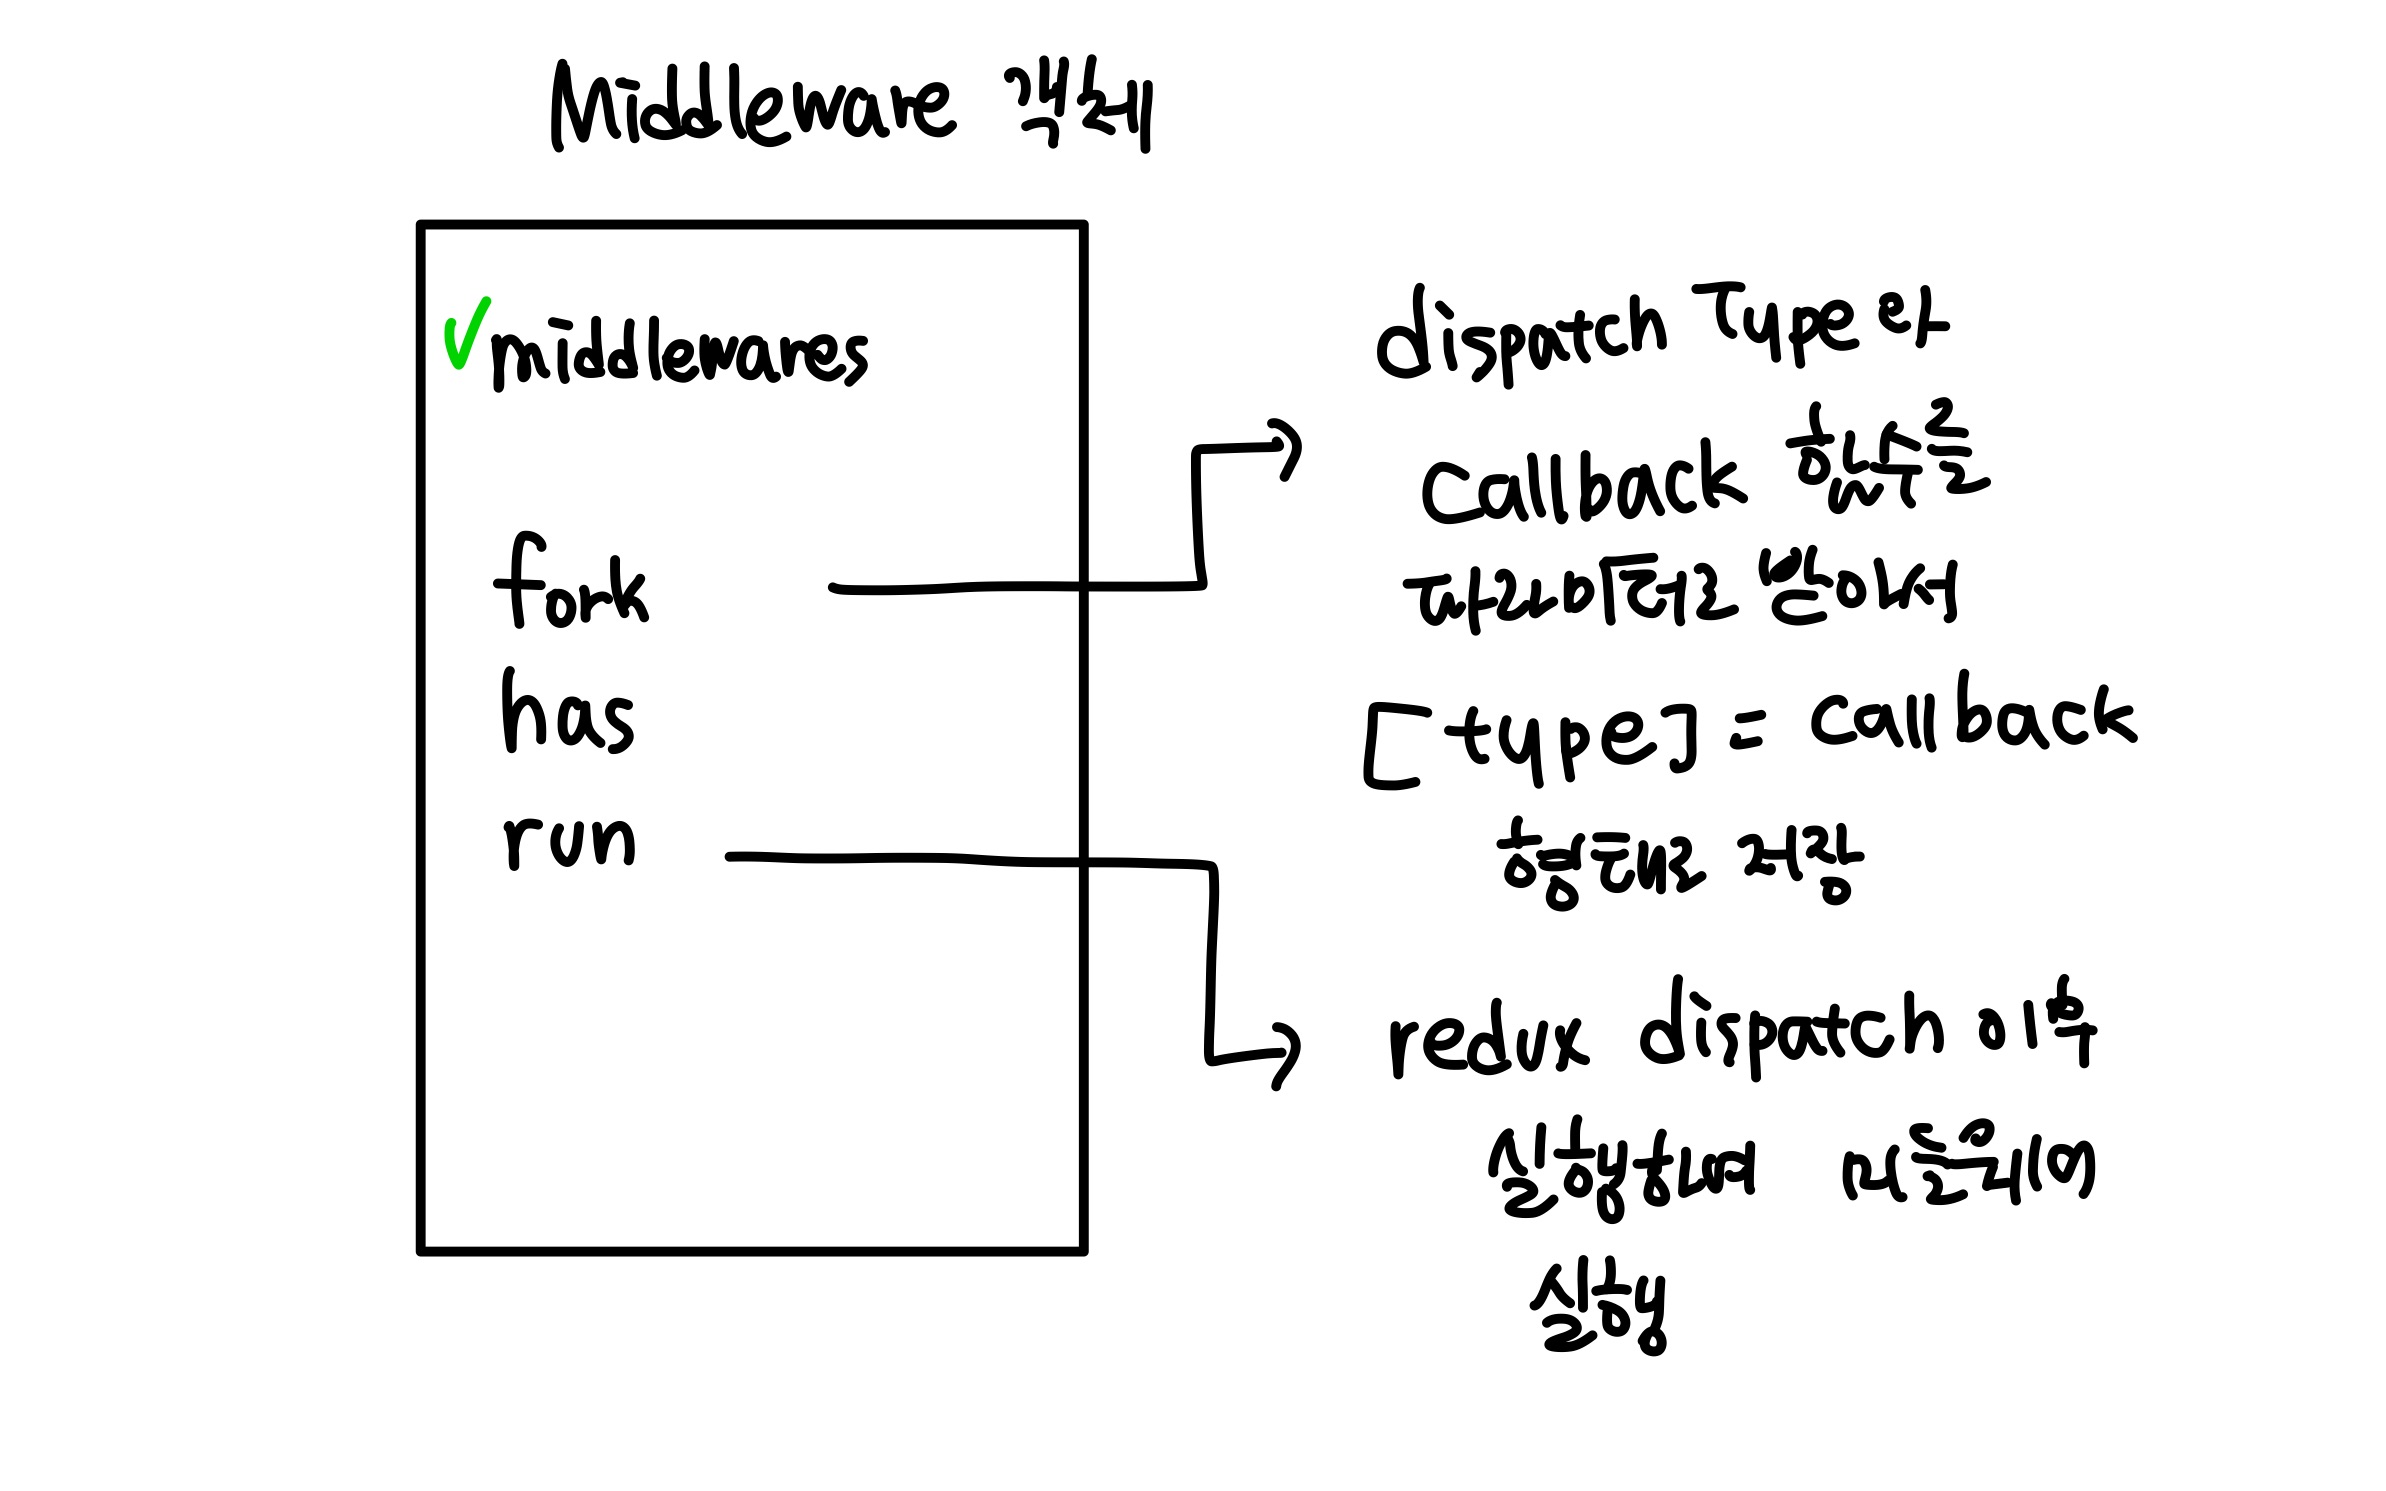 Middleware 객체
middlewares
fork
has
run
dispatch Type과
callback 함수를
파라미터로 받아서
[type] = callback
형태로 저장
redux dispatch 이후
실행한다 비동기적인
실행